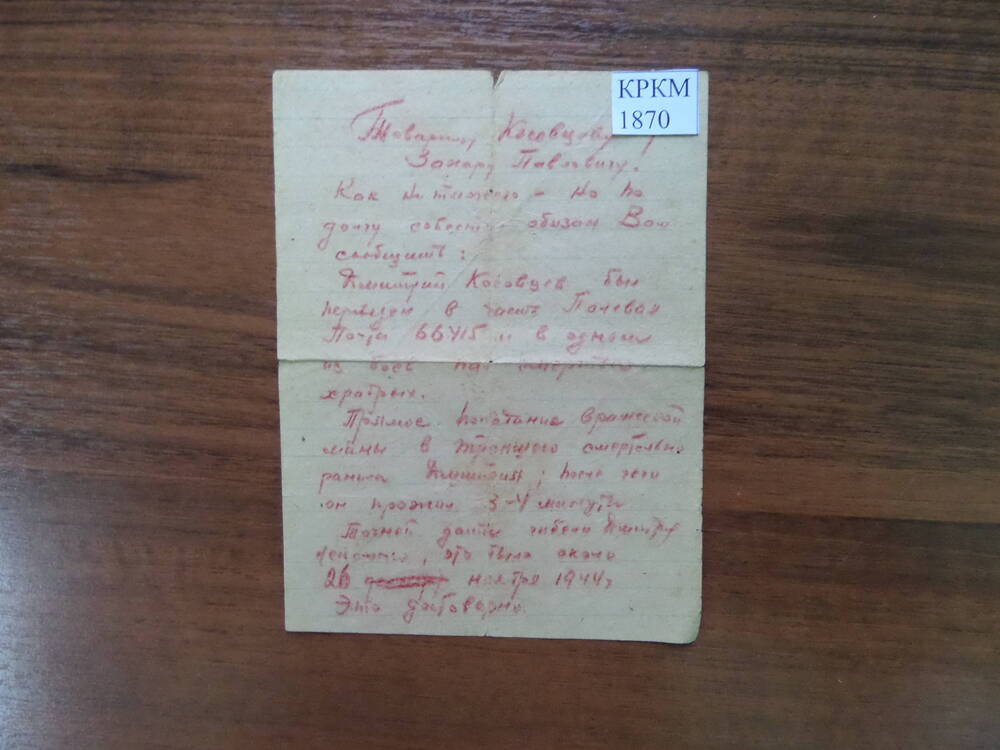 КРКМ
1870
Товарищу Косовцеву
Захару Павловичу.
Как ни тяжело - но по
долгу совести обязан Вам
сообщить:
Дмитрий Косовцев был
переведен в часть Полевая
Почта 66415 и в одном
из боев пал смертью
храбрых.
Прямое попадание вражеской
мины в траншею смертельно
ранило Дмитрия; после чего
он прожил 3-4 минуты
Точной даты гибели
это было около
26 ноября 1944г
Это достоверно.